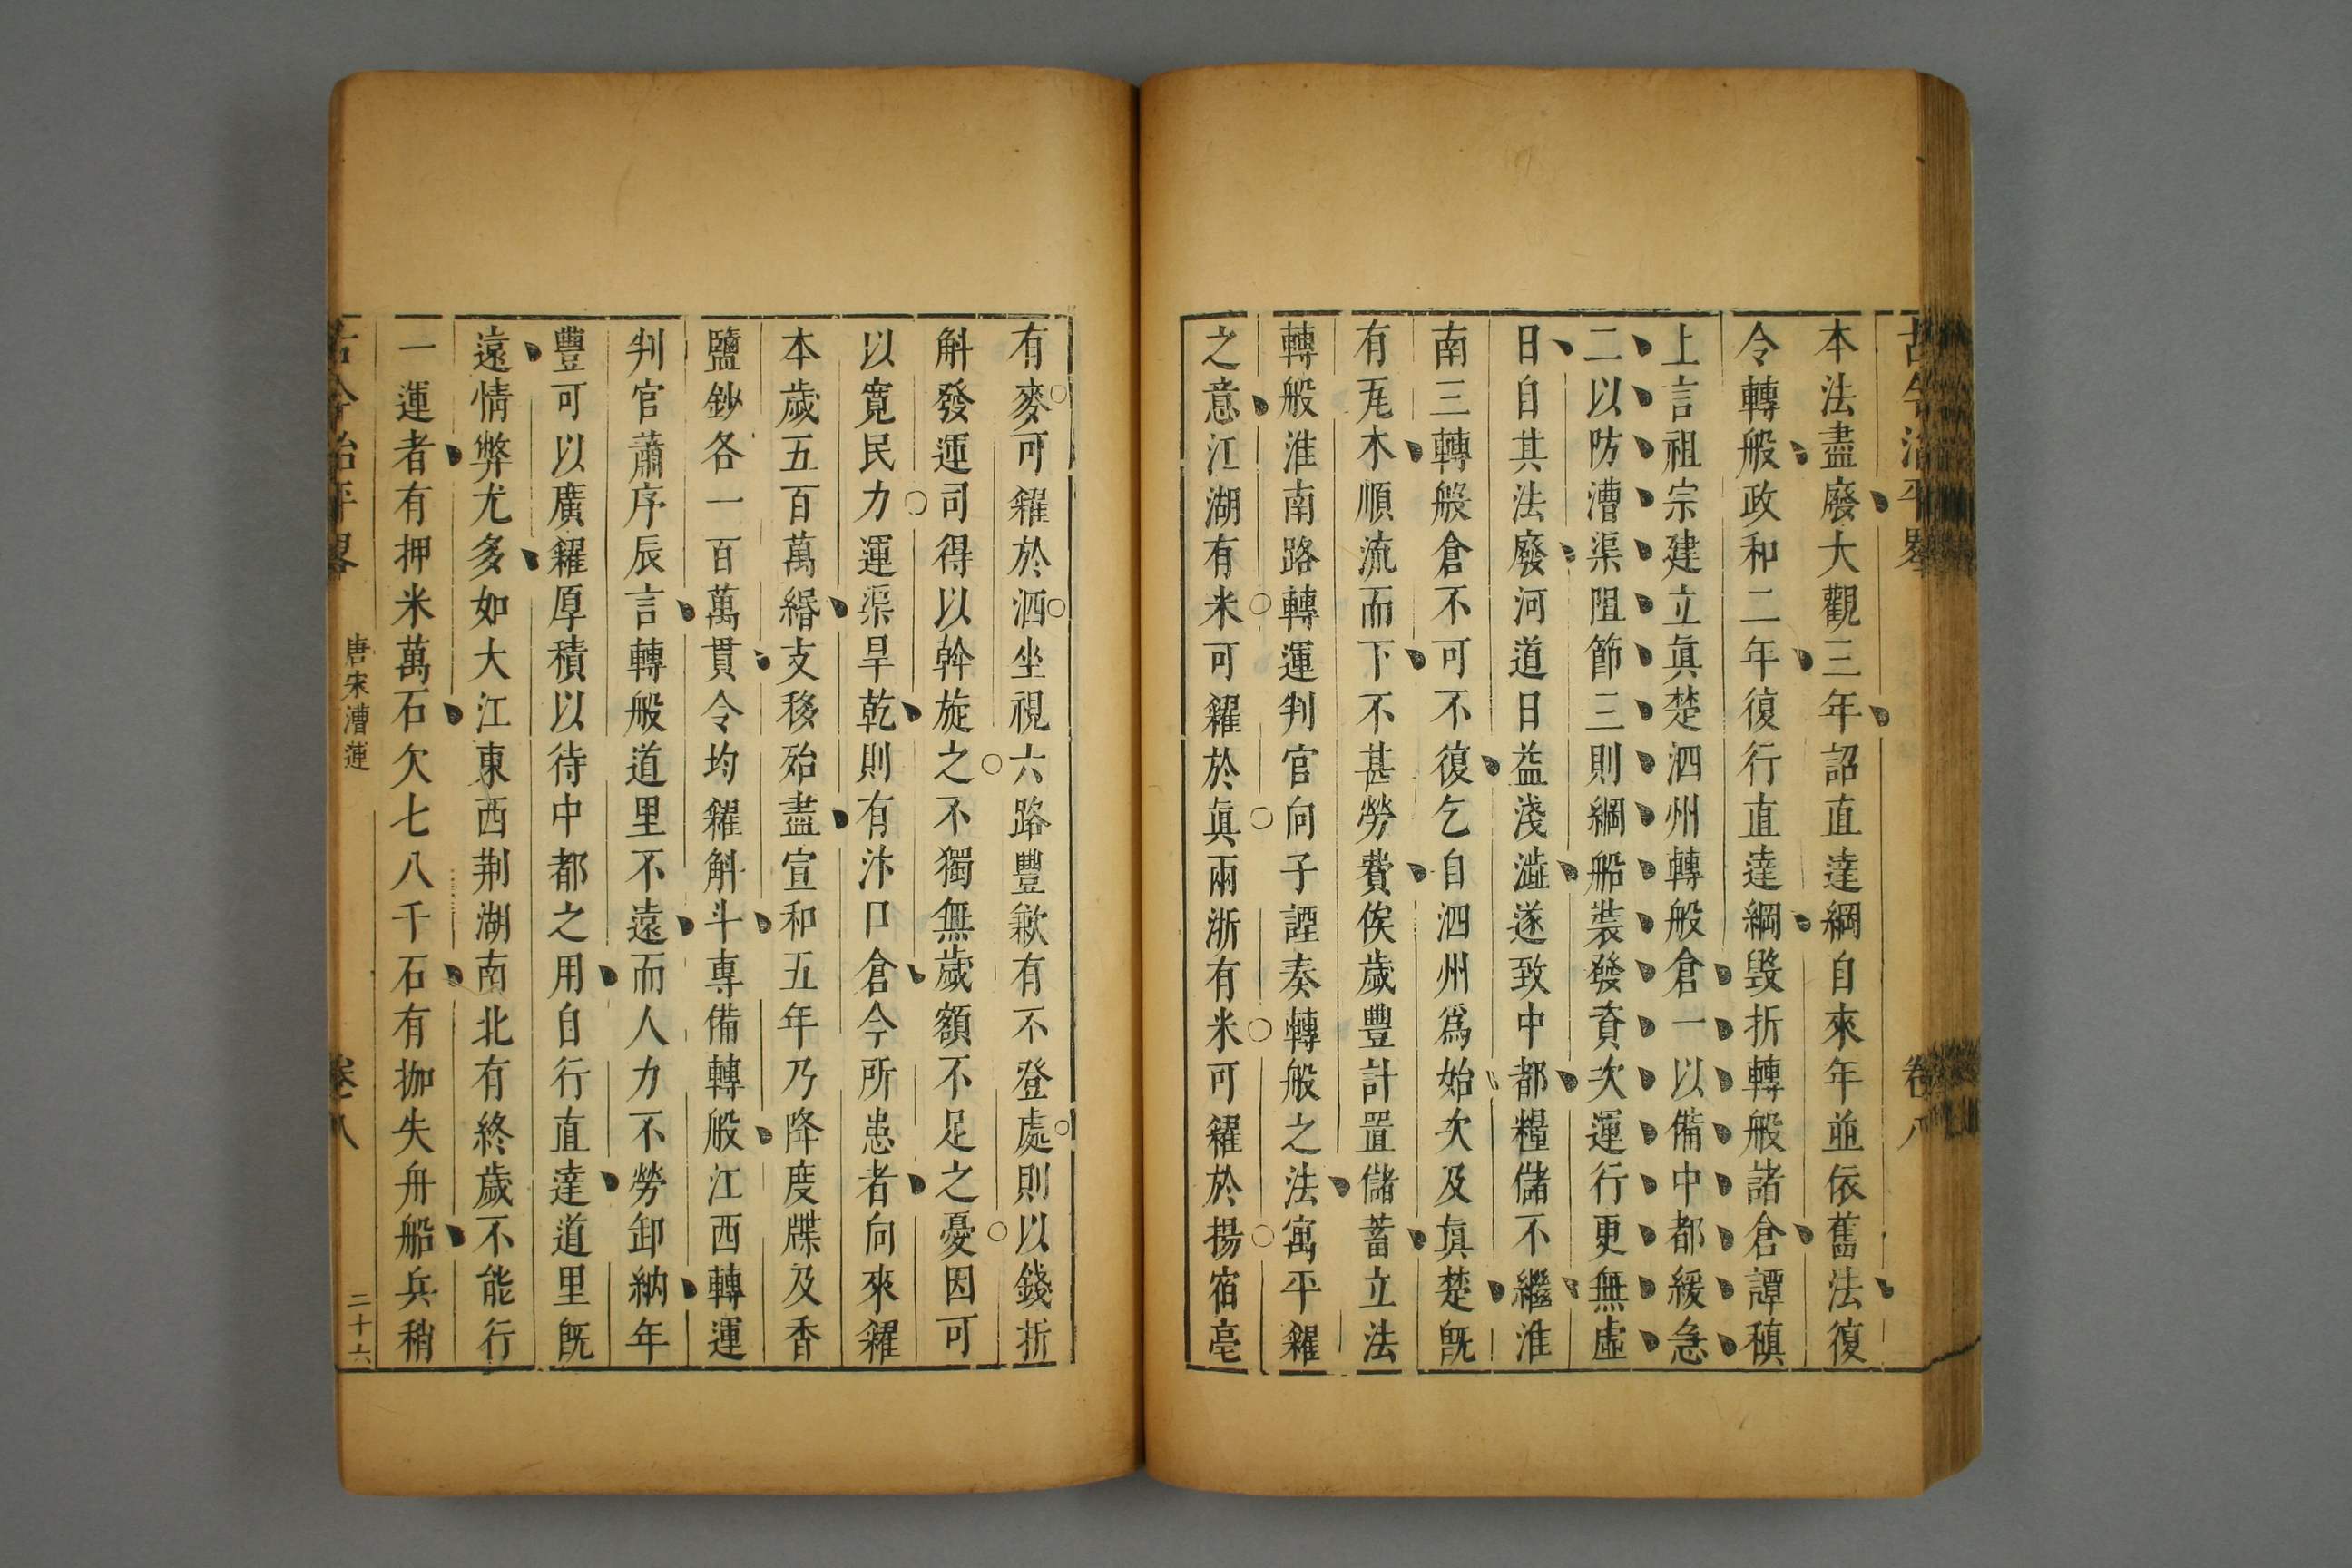 古今治平畧
卷八
本法盡廢大觀三年詔直達綱自來年並依舊法復
令轉般政和二年復行直達綱毀折轉般諸倉譚稹
上言祖宗建立眞楚泗州轉般倉一以備中都緩急
二以防漕渠阻節三則綱船裝發資次運行更無虛
日自其法廢河道日益淺澁遂致中都糧儲不繼淮
南三轉般倉不可不復乞自泗州爲始次及眞楚旣
有瓦木順流而下不甚勞費俟歲豐計置儲蓄立法
轉般淮南路轉運判官向子諲奏轉般之法寓平糴
之意江湖有米可糴於眞兩浙有米可糴於揚宿亳
有麥可糴於泗坐視六路豐歉有不登處則以錢折
斛發運司得以斡旋之不獨無歲額不足之憂因可
以寬民力運渠旱乾則有汴口倉今所患者向來糴
本歲五百萬緡支移殆盡宣和五年乃降度牒及香
鹽鈔各一百萬貫令均糴斛斗專備轉般江西轉運
判官蕭序辰言轉般道里不遠而人力不勞卸納年
豐可以廣糴厚積以待中都之用自行直達道里旣
遠情弊尤多如大江東西荆湖南北有終歲不能行
一運者有押米萬石欠七八千石有抛失舟船兵稍
古今治平畧
唐宋漕運
卷八
二十六